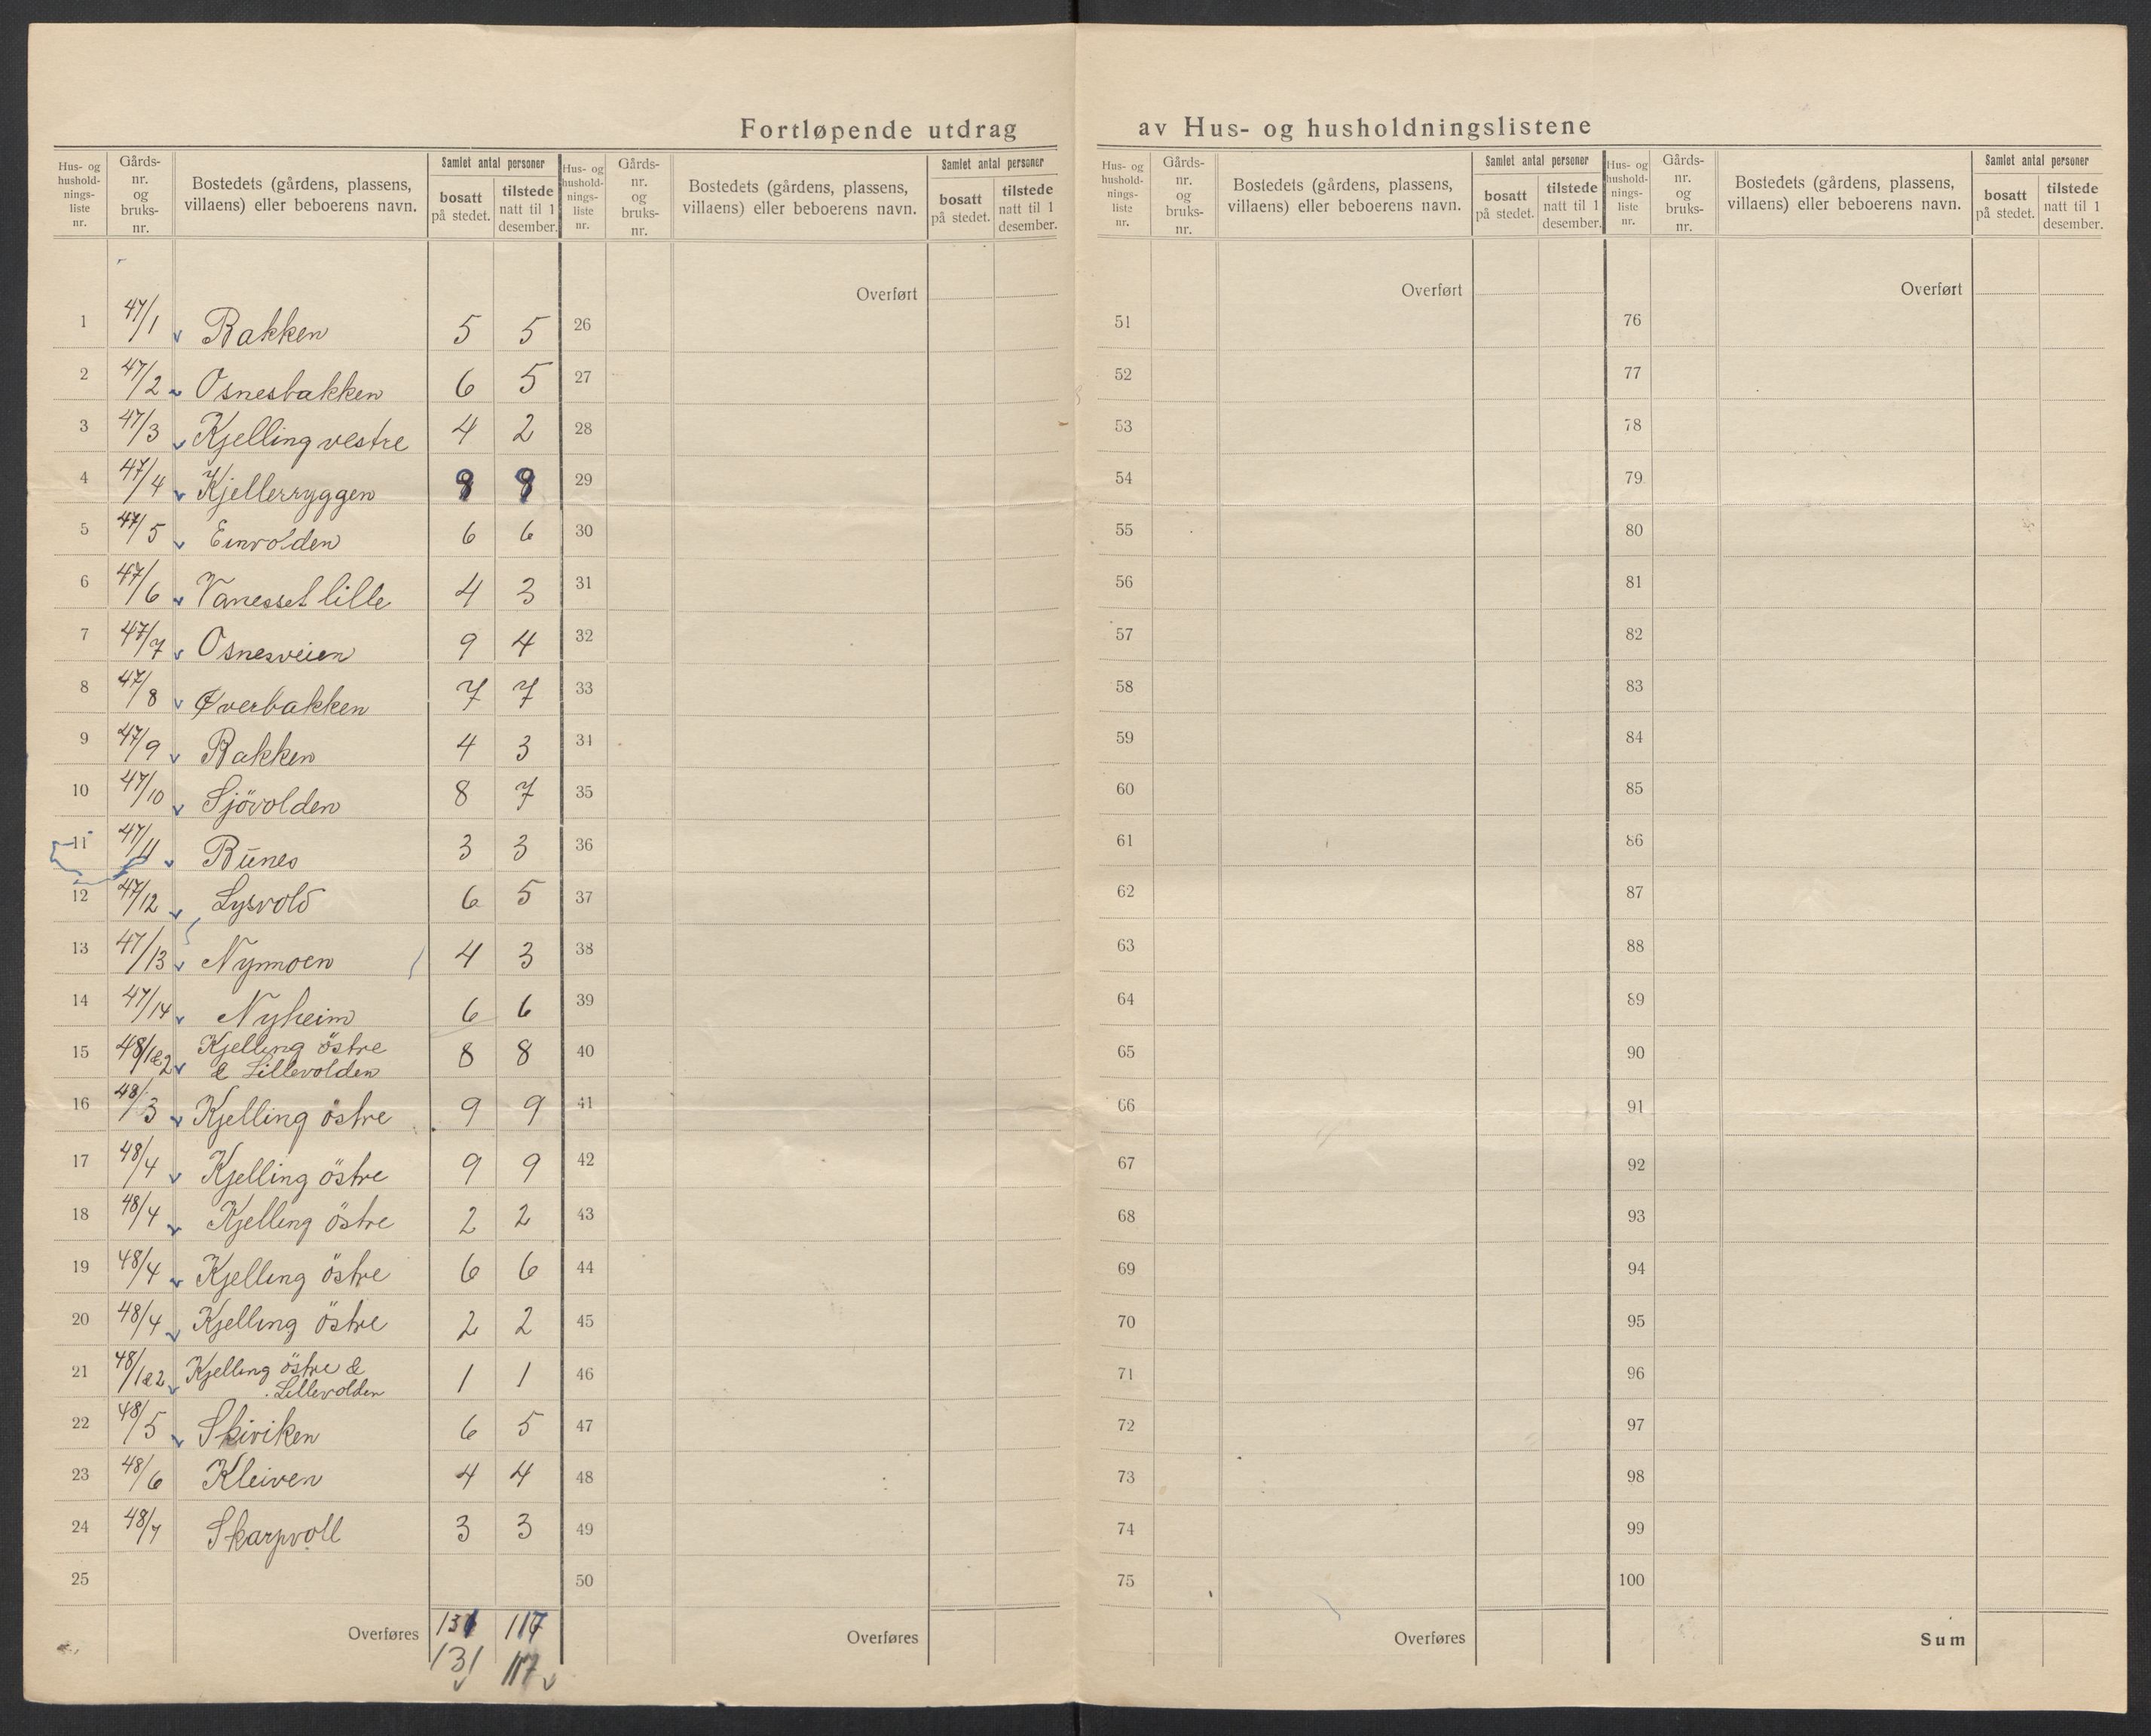 Fortløpende utdrag av Hus- og husholdningslistene
Hus- og hushold-nings-liste nr. | Gårds-nr. og bruks-nr. | Bostedets (gårdens, plassens, villaens) eller beboerens navn. | Samlet antal personer | bosatt på stedet. | tilstede natt til 1 desember.
Hus- og hushold-nings-liste nr. | Gårds-nr. og bruks-nr. | Bostedets (gårdens, plassens, villaens) eller beboerens navn. | Samlet antal personer | bosatt på stedet. | tilstede natt til 1 desember.
Hus- og hushold-nings-liste nr. | Gårds-nr. og bruks-nr. | Bostedets (gårdens, plassens, villaens) eller beboerens navn. | Samlet antal personer | bosatt på stedet. | tilstede natt til 1 desember.
Hus- og hushold-nings-liste nr. | Gårds-nr. og bruks-nr. | Bostedets (gårdens, plassens, villaens) eller beboerens navn. | Samlet antal personer | bosatt på stedet. | tilstede natt til 1 desember.
Overført Overført Overført
1 47/1 Bakken 5 5 26 51 76
2 47/2 Osnesbakken 6 5 27 52 77
3 47/3 Kjelling vestre 4 2 28 53 78
4 47/4 Kjellerryggen 29 54 79
5 47/5 Einvolden 6 6 30 55 80
6 47/6 Vanesset lille 4 3 31 56 81
7 47/7 Osnesveien 9 4 32 57 82
8 47/8 Øverbakken 7 7 33 58 83
9 47/9 Bakken 4 3 34 59 84
10 47/10 Sjövolden 8 7 35 60 85
11 47/11 Bunes 3 3 36 61 86
12 47/12 Lysvold 6 5 37 62 87
13 47/13 Nymoen 4 3 38 63 88
14 47/14 Nyheim 6 6 39 64 89
15 48/1&2 Kjelling östre & Lillevolden 8 8 40 65 90
16 48/3 Kjelling östre 9 9 41 66 91
17 48/4 Kjelling östre 9 9 42 67 92
18 48/4 Kjelling östre 2 2 43 68 93
19 48/4 Kjelling östre 6 6 44 69 94
20 48/4 Kjelling östre 2 2 45 70 95
21 48/1&2 Kjelling östre & Lillevolden 1 1 46 71 96
22 48/5 Skiviken 6 5 47 72 97
23 48/6 Kleiven 4 4 48 73 98
24 48/7 Skarpvoll 3 3 49 74 99
25 50 75 100
Overføres 131 117 Overføres Overføres Sum
131 117